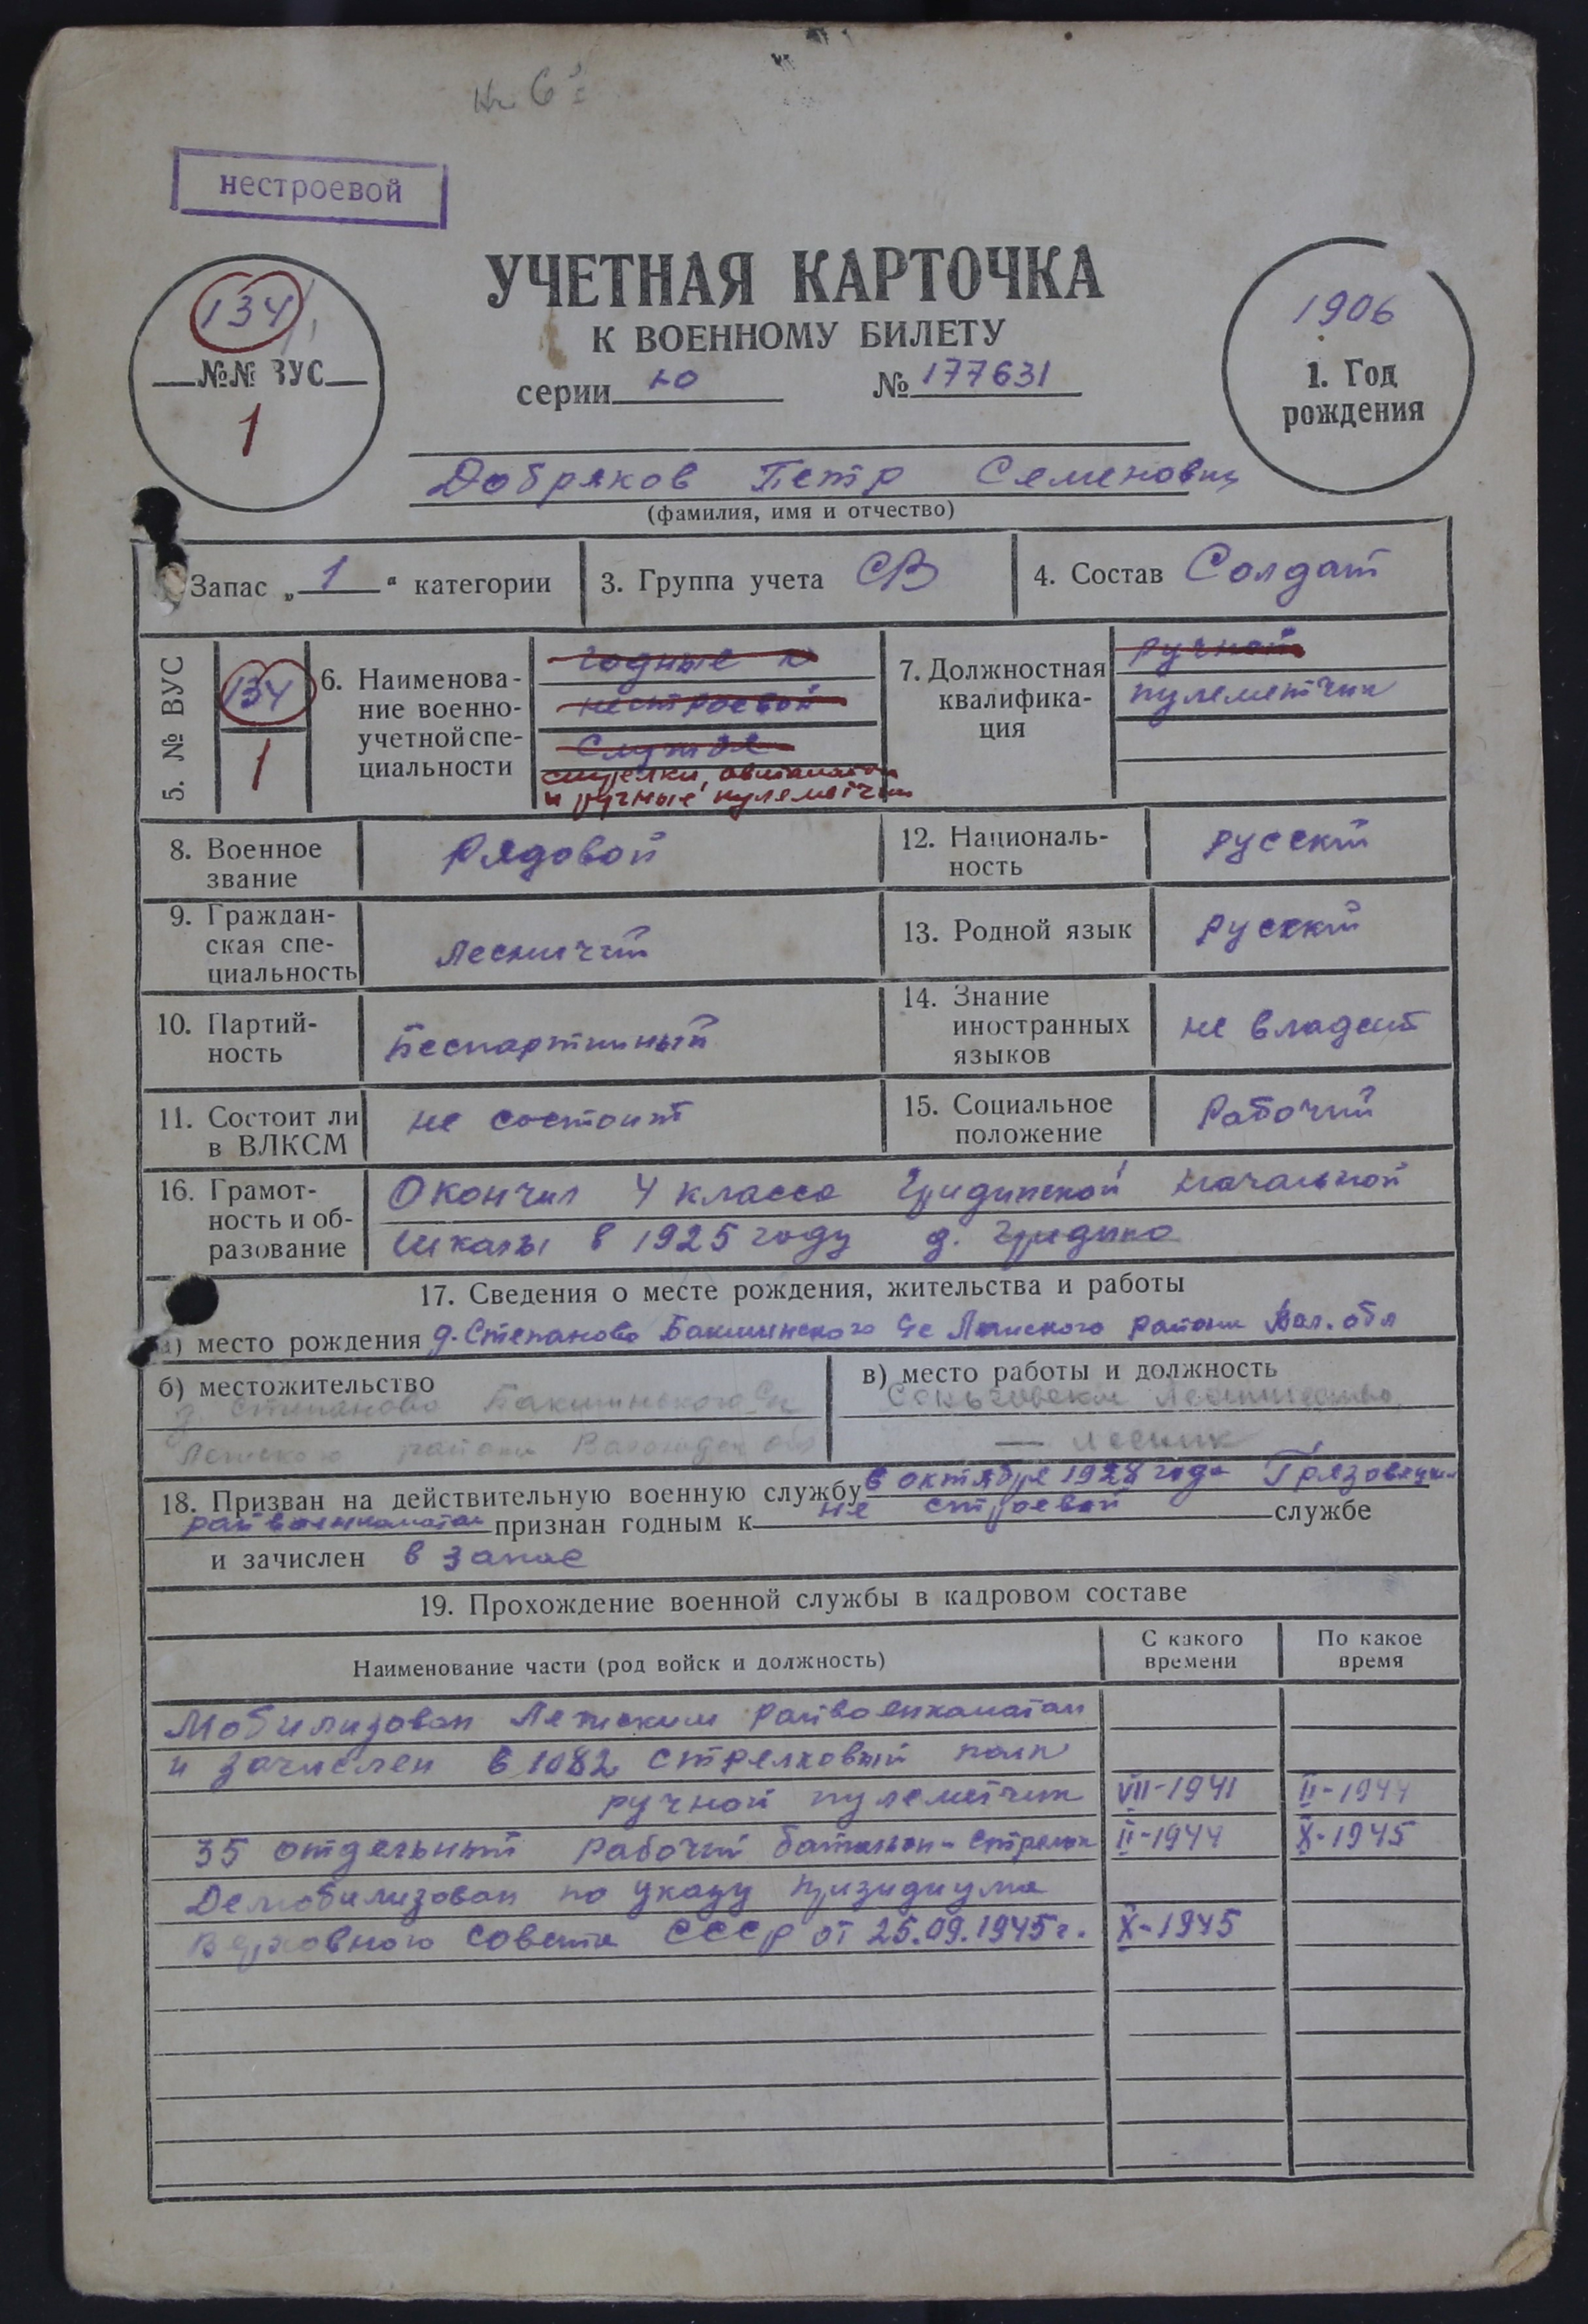 нестроевой
134
№№ ВУС
1
УЧЕТНАЯ КАРТОЧКА
К ВОЕННОМУ БИЛЕТУ
серии Ю № 177631
1906
1. Год
рождения
Добряков Петр Семенович
(фамилия, имя и отчество)
Запас „ 1 “ категории
3. Группа учета СВ
4. Состав Солдат
5. № ВУС
134
1
6. Наименова-
ние военно-
учетной спе-
циальности
годные к
нестроевой
службе
стрелки, автоматч
и ручные пулеметчики
7. Должностная
квалифика-
ция
ручной
пулеметчик
8. Военное
звание
Рядовой
12. Националь-
ность
русский
9. Граждан-
ская спе-
циальность
Лесничий
13. Родной язык
русский
10. Партий-
ность
Беспартийный
14. Знание
иностранных
языков
не владеет
11. Состоит ли
в ВЛКСМ
не состоит
15. Социальное
положение
Рабочий
16. Грамот-
ность и об-
разование
Окончил 4 класса Гридинской начальной
школы в 1925 году д. Гридино
17. Сведения о месте рождения, жительства и работы
а) место рождения д. Степаново Бакшинского с/с Лежского района Вол. обл
б) местожительство
д. Степаново Бакшинского с/с
Лежского района Вологодск обл
в) место работы и должность
лесничество
— лесник
18. Призван на действительную военную службу в октябре 1928 года Грязовецким
райвоенкоматом признан годным к не строевой службе
и зачислен в запас
19. Прохождение военной службы в кадровом составе
Наименование части (род войск и должность)
С какого
времени
По какое
время
Мобилизован Лежским райвоенкоматом
и зачислен в 1082 стрелковый полк
ручной пулеметчик VII-1941 II-1944
35 отдельный рабочий батальон - стрелок II-1944 X-1945
Демобилизован по указу призидиума
Верховного совета СССР от 25.09.1945 г. X-1945